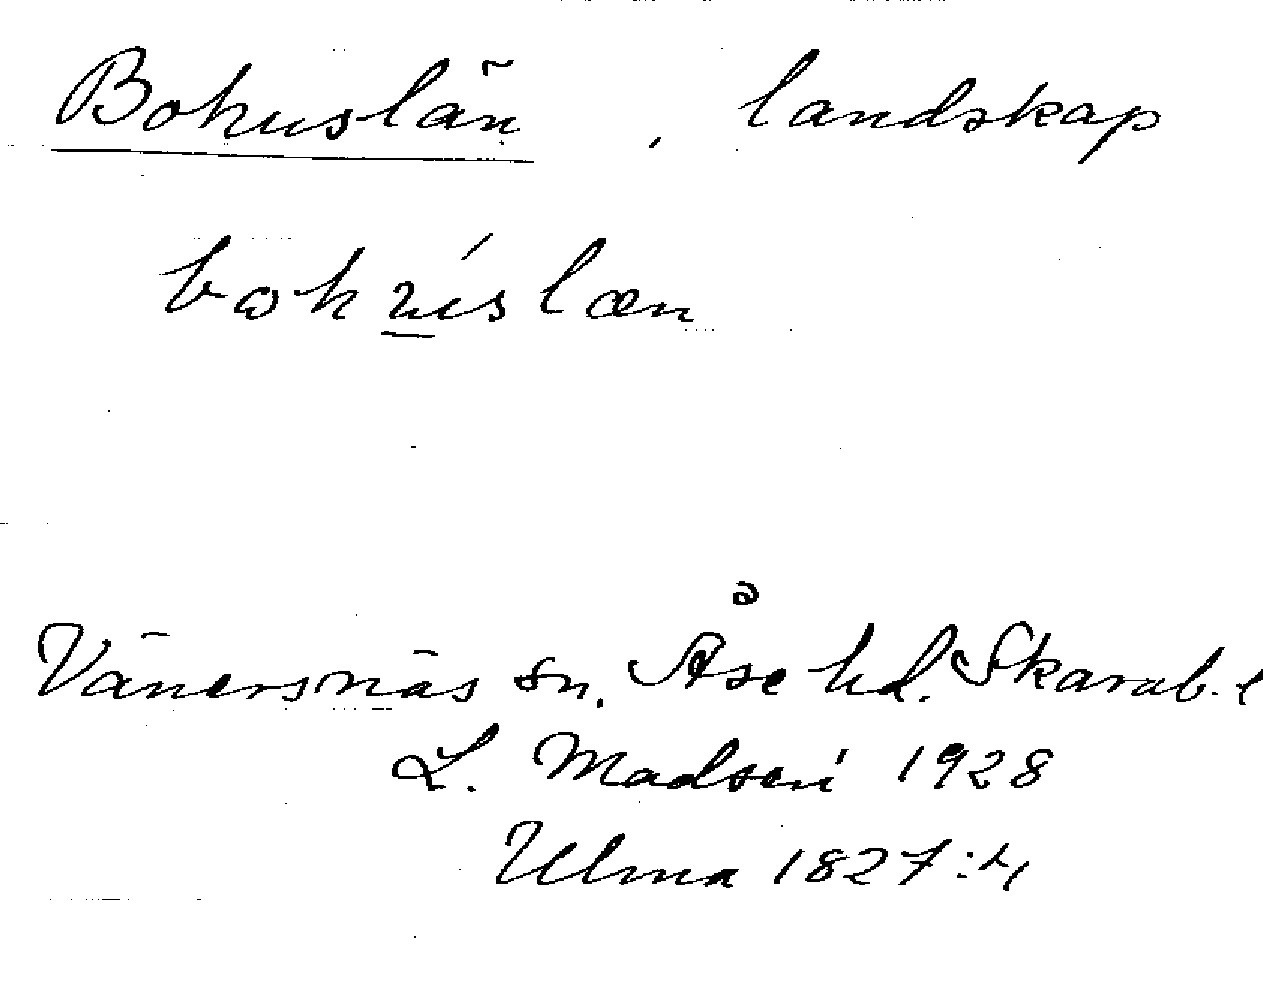 Bohuslän, landskap
bωhúslæn
Vänersnäs sn. Åse hd. Skarab. l
L. Madsén 1928
Ulma 1827:4